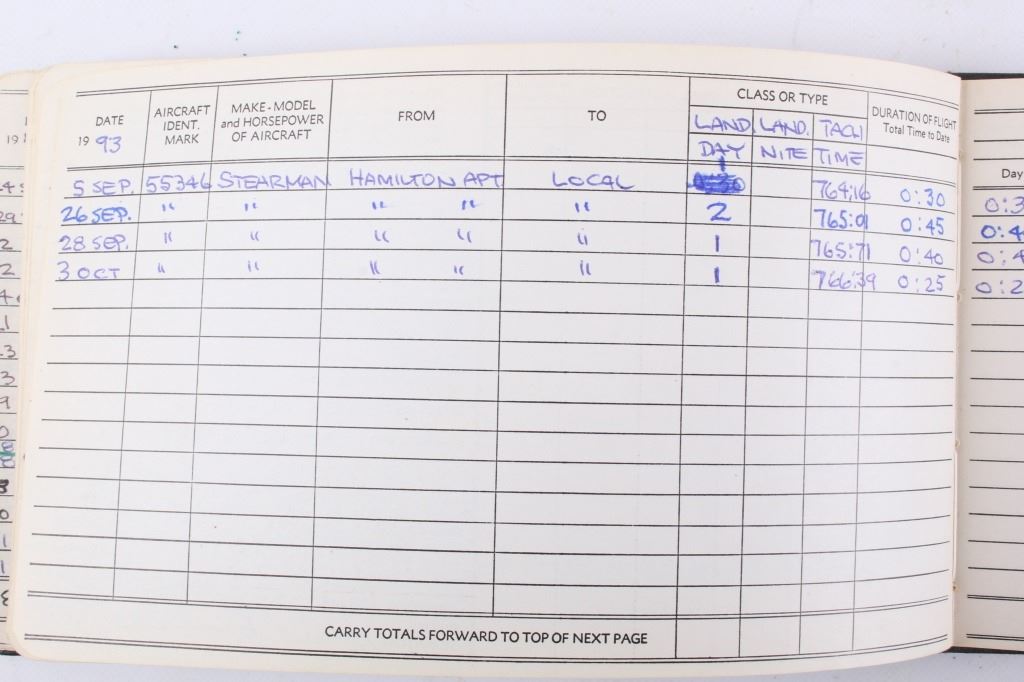 CLASS OR TYPE
DATE AIRCRAFT IDENT. MARK MAKE-MODEL and HORSEPOWER OF AIRCRAFT FROM TO DURATION OF FLIGHT Total Time to Date
19 93 LAND. LAND. TACH
DAY NITE TIME
5 SEP. 55346 STEARMAN HAMILTON APT LOCAL 1 764:16 0:30
26 SEP. " " " " " 2 765:01 0:45
28 SEP. " " " " " 1 765:71 0:40
3 OCT " " " " " 1 766:39 0:25
CARRY TOTALS FORWARD TO TOP OF NEXT PAGE
Day